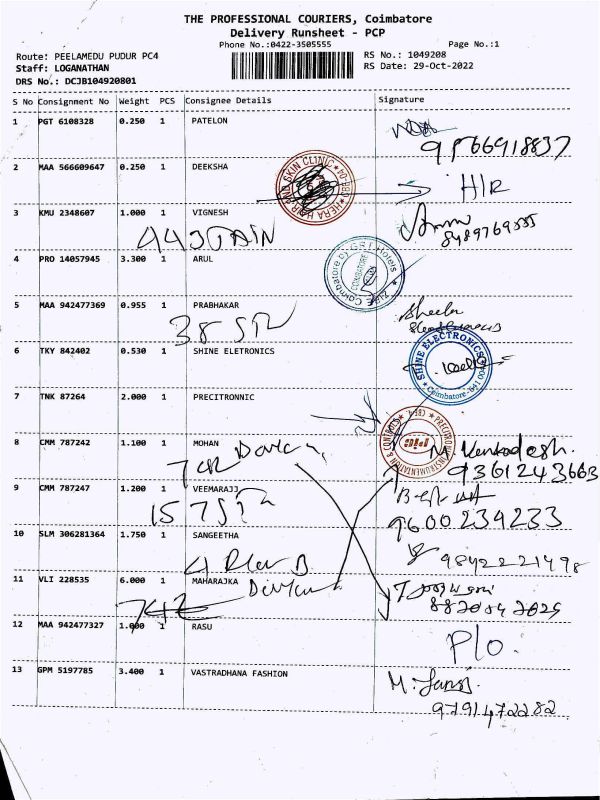 THE PROFESSIONAL COURIERS, Coimbatore
Delivery Runsheet - PCP
Phone No.:0422-3505555
Page No.:1
Route: PEELAMEDU PUDUR PC4
RS No.: 1049208
Staff: LOGANATHAN
RS Date: 29-Oct-2022
DRS No.: DCJB104920801
S No Consignment No Weight PCS Consignee Details Signature
1 PGT 6108328 0.250 1 PATELON
2 MAA 566609647 0.250 1 DEEKSHA
HERA HAIR AND SKIN CLINIC
H/R
3 KMU 2348607 1.000 1 VIGNESH
8489769555
4 PRO 14057945 3.300 1 ARUL
Coimbatore by G.R.T Hotels
COIMBATORE
5 MAA 942477369 0.955 1 PRABHAKAR
38 STR
Sheela
6 TKY 842402 0.530 1 SHINE ELETRONICS
SHINE ELECTRONICS
Coimbatore-641 004
7 TNK 87264 2.000 1 PRECITRONNIC
8 CMM 787242 1.100 1 MOHAN
M. Venkadesh.
9361243663
9 CMM 787247 1.200 1 VEEMARAJJ
9600234233
10 SLM 306281364 1.750 1 SANGEETHA
9842221498
11 VLI 228535 6.000 1 MAHARAJKA
12 MAA 942477327 1.000 1 RASU
P/O.
13 GPM 5197785 3.400 1 VASTRADHANA FASHION
9791472282